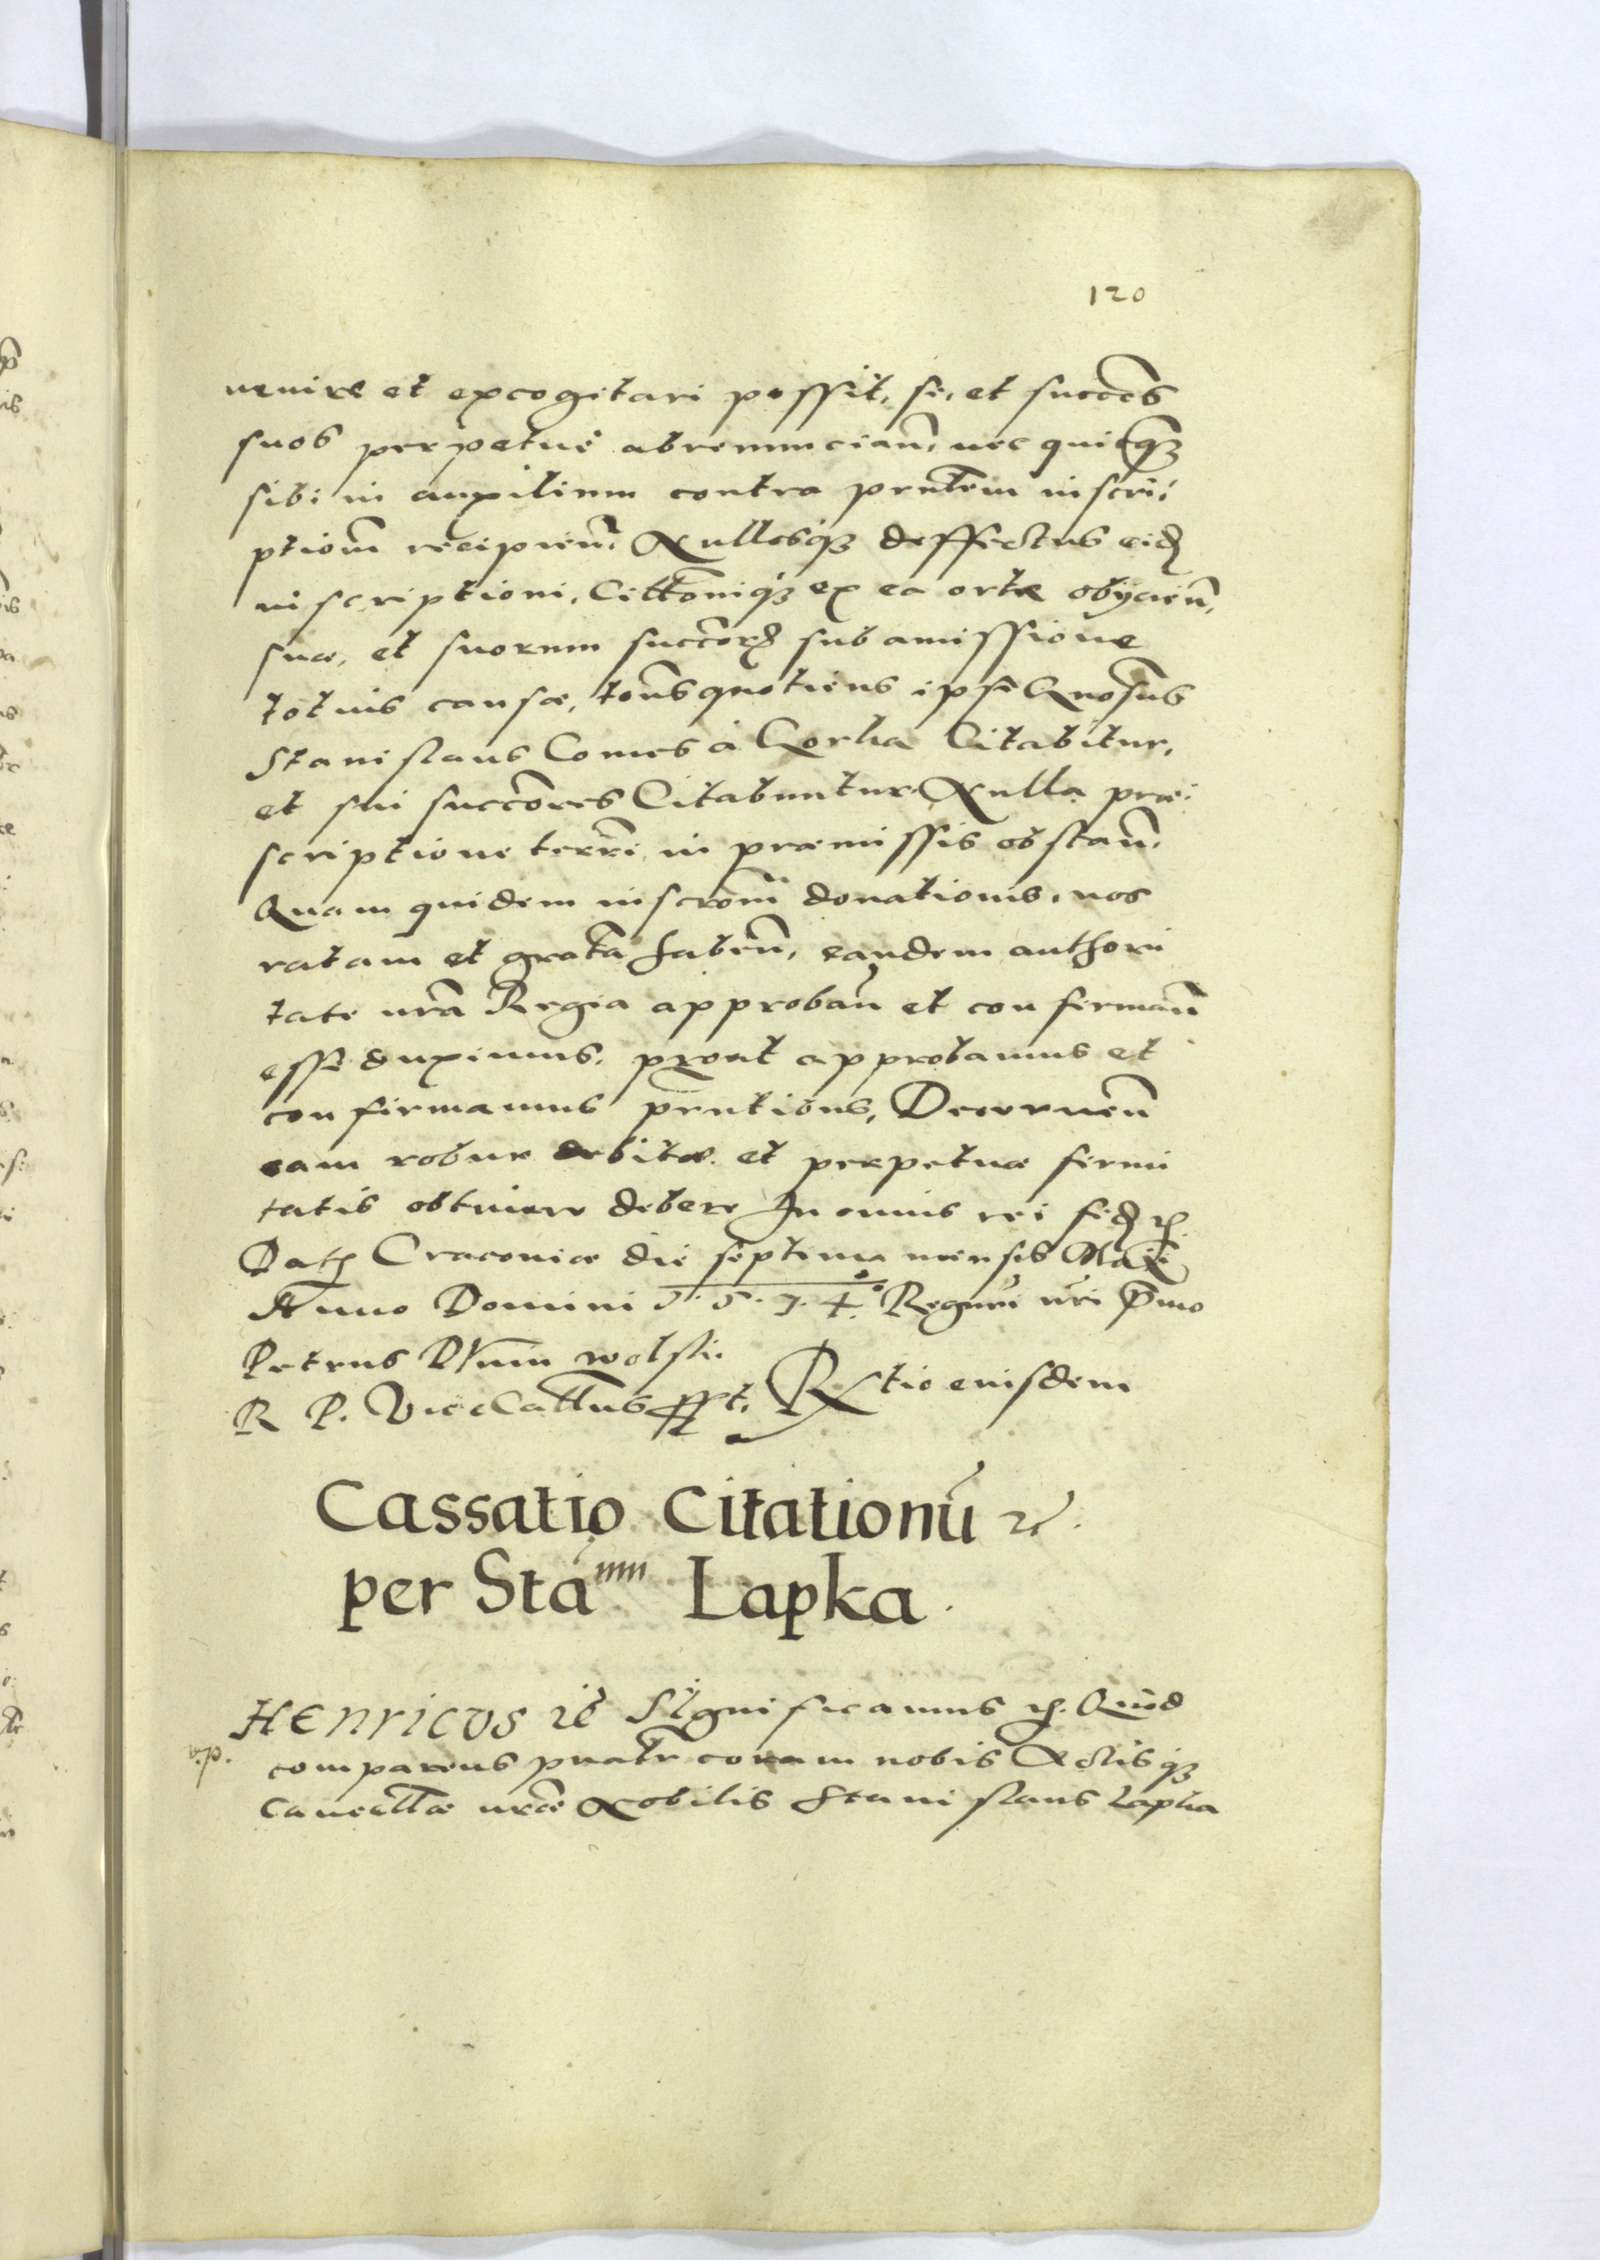 120
venire et excogitari possit, se, et succes
suos perpetuè abrenuncian̄, nec quicq̄ꝫ
sibi in auxilium contra pr̄ntem inscri-
ptiom̄ recipien̄. Nullosqꝫ deffectus eid
inscriptioni, Citt̄oniqꝫ ex ea ortæ obÿcien̄,
sua, et suorum succ̄or sub amissione
totius causæ, tot̄ns quotiens ipse Gnosūs
Stanislaus Comes à Gorka Citabitur,
et sui succ̄ores Citabuntur. Nulla præ-
scriptione terrē in præmissis obstan̄.
Quam quidem inscr̄om̄ donationis, nos
ratam et grat̄a haben̄, eandem authori
tate nr̄a Regia approban̄ et confirman̄
esse duximus, prout approbamus et
confirmamus pr̄ntibus, Decernen̄
eam robur debitæ et perpetuæ firmi
tatis obtinere debere In cuius rei fid ꝛc.
Dat Cracoviæ die septima mensis Maÿ
Anno Domini 1.5.7.4. Regni nr̄i P̄rmo
Petrus Dunin Wolski
R P. ViceCat̄lus sst. Rtio eiusdem
Cassatio Citationū ꝛc̄.
per Sta^um Lapka.
HENRICVS ꝛc̄ Significamus ꝛc. Quod
v.p. comparens pn̄altr coram nobis Actisqꝫ
Cancell̄æ nr̄æ Nobilis Stanislaus Lapka